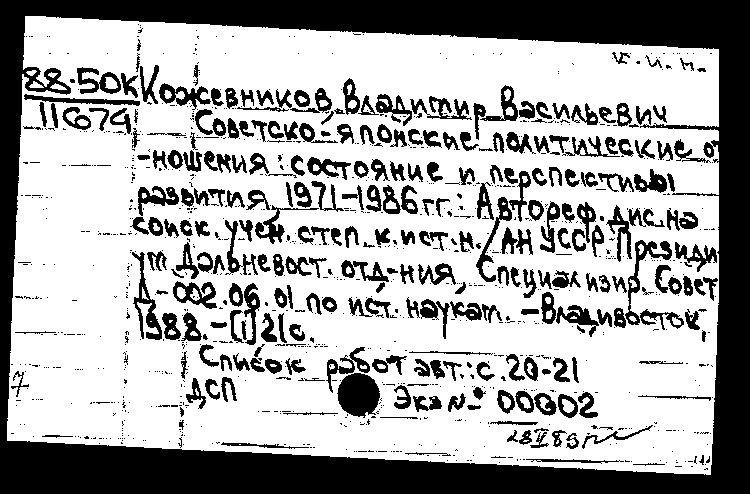 к.и.н.
88-50К Кожевников, Владимир Васильевич
11674 Советско-японские политические от
-ношения: состояние и перспективы
развития, 1971-1986 гг.: Автореф. дис. на
соиск. учен. степ. к.ист.н. / АН УССР. Президи
ум Дальневост. отд-ния, Специализир. Совет
Д-002.06.01 по ист. наукам. – Владивосток,
1988. – [1] 21 с.
Список работ авт.: с. 20-21
7 ДСП Экз № 00002